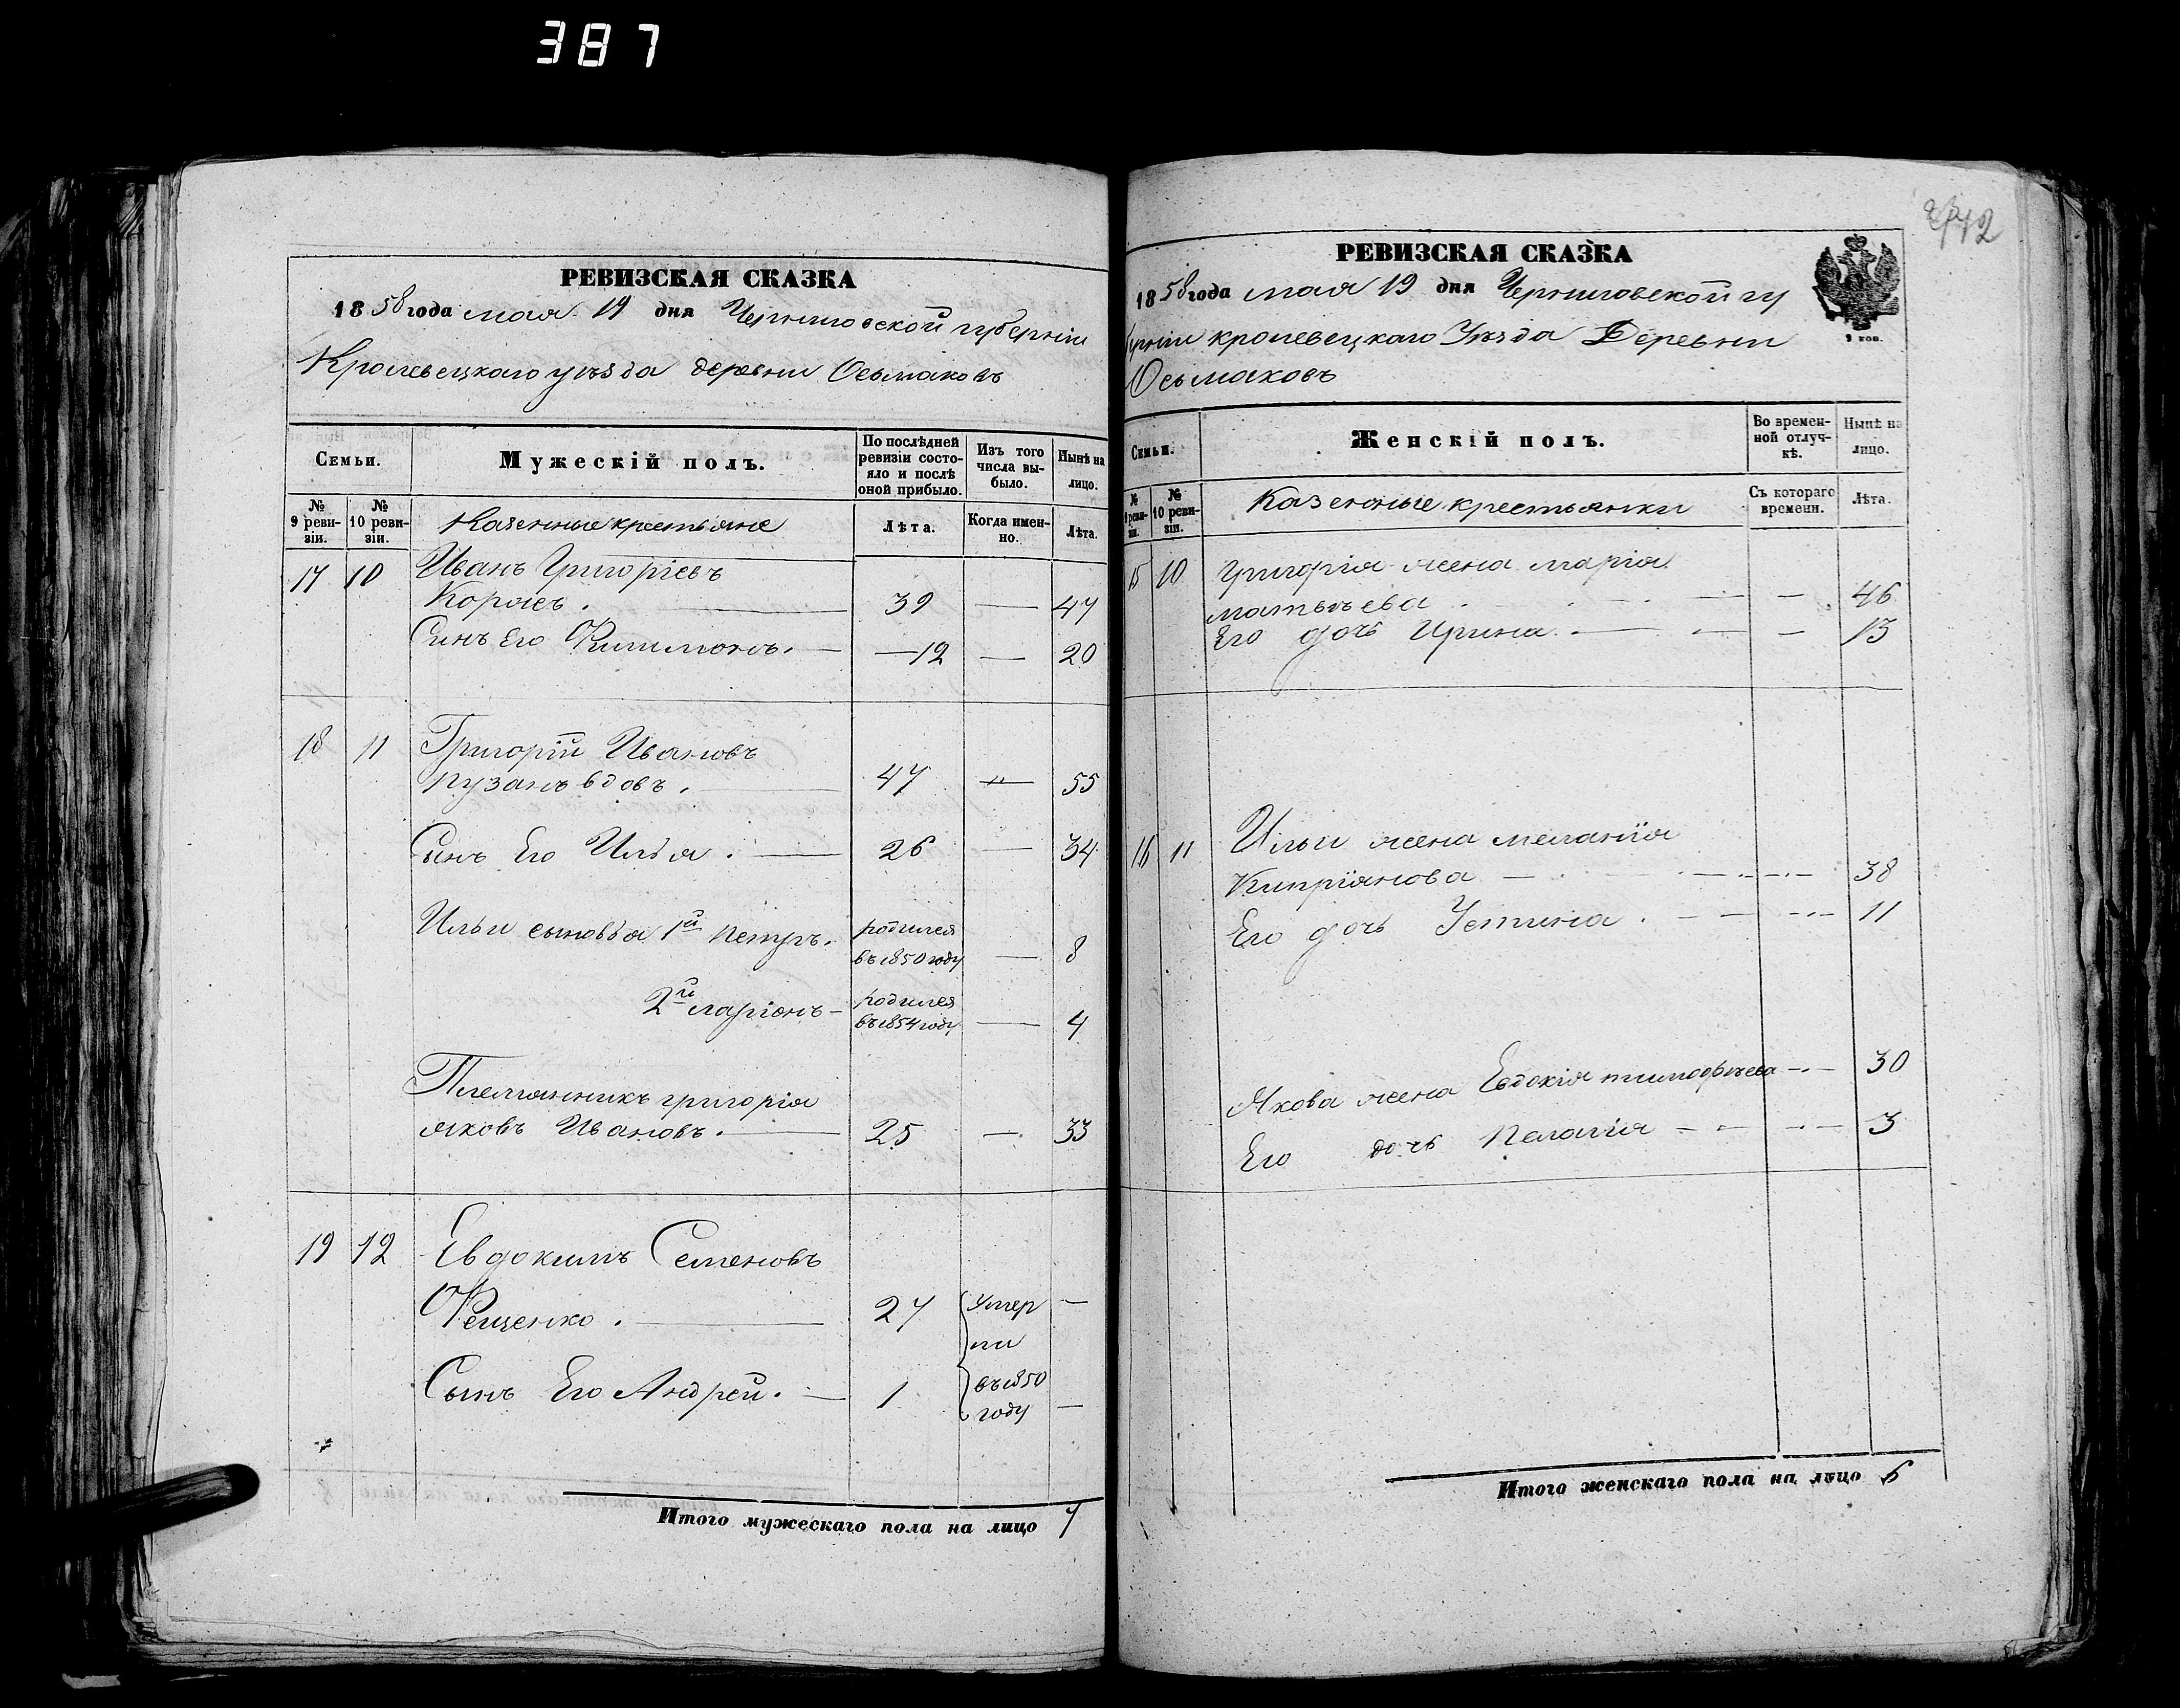 387
РЕВИЗСКАЯ СКАЗКА
1858 года мая 19 дня Черниговской губерніи
Кролевецкаго уѣзда деревни Осьмаковъ
Семьи.
Мужескій полъ.
По послѣдней ревизіи состояло и послѣ оной прибыло.
Изъ того числа выбыло.
Нынѣ на лицо.
№ 9 ревизіи.
№ 10 ревизіи.
Казенные крестьяне
Лѣта.
Когда именно.
Лѣта.
17 10 Иванъ Григорьевъ
39 — 47
Синъ Его Филимонъ. — 12 — 20
18 11 Григорій Ивановъ
Пузанъ вдовъ. 47 — 55
Сынъ Его Илья. — 26 — 34
Ильи сыновья 1й Петръ. родился
въ 1850 году — 8
2й Ларіонъ - родился
въ 1854 году — 4
Племянникъ григорія
яковъ Ивановъ. — 25 — 33
19 12 Евдокимъ Семеновъ
Фещенко. — 27 умер —
ли
Сынъ Его Андрей. — 1 въ 1850
году —
Итого мужескаго пола на лицо 7
РЕВИЗСКАЯ СКАЗКА
1858 года мая 19 дня Черниговской гу
берніи кролевецкаго Уѣзда Деревни
Осьмаковъ
Семьи.
Женскій полъ.
Во временной отлучкѣ.
Нынѣ на лицо.
№ 9 ревизіи.
№ 10 ревизіи.
Казенные крестьянки
Съ котораго времени.
Лѣта.
15 10 Григорія жена марія
матвѣева — 46
Его дочь Ирина. — 13
16 11 Ильи жена меланія
Кипріянова — 38
Его дочь Устина. — 11
Якова жена Евдокія тимофѣева — 30
Его дочь Пелагія — 3
Итого женскаго пола на лицо 6